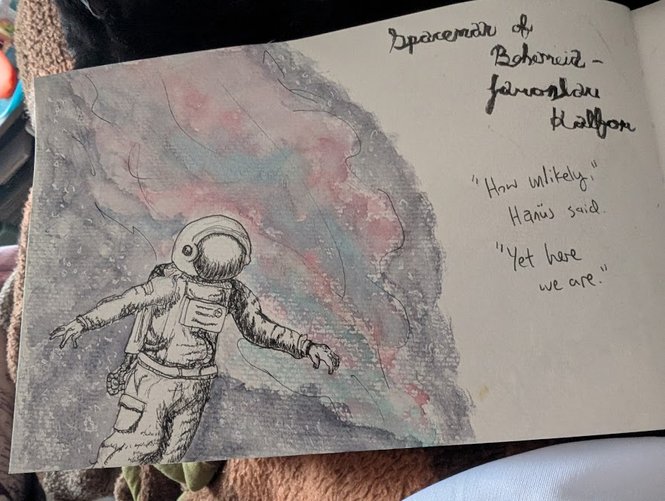 Spaceman of
Bohemia -
Jaroslav
Kalfar
"How unlikely,"
Hanuš said.
"Yet here
we are."